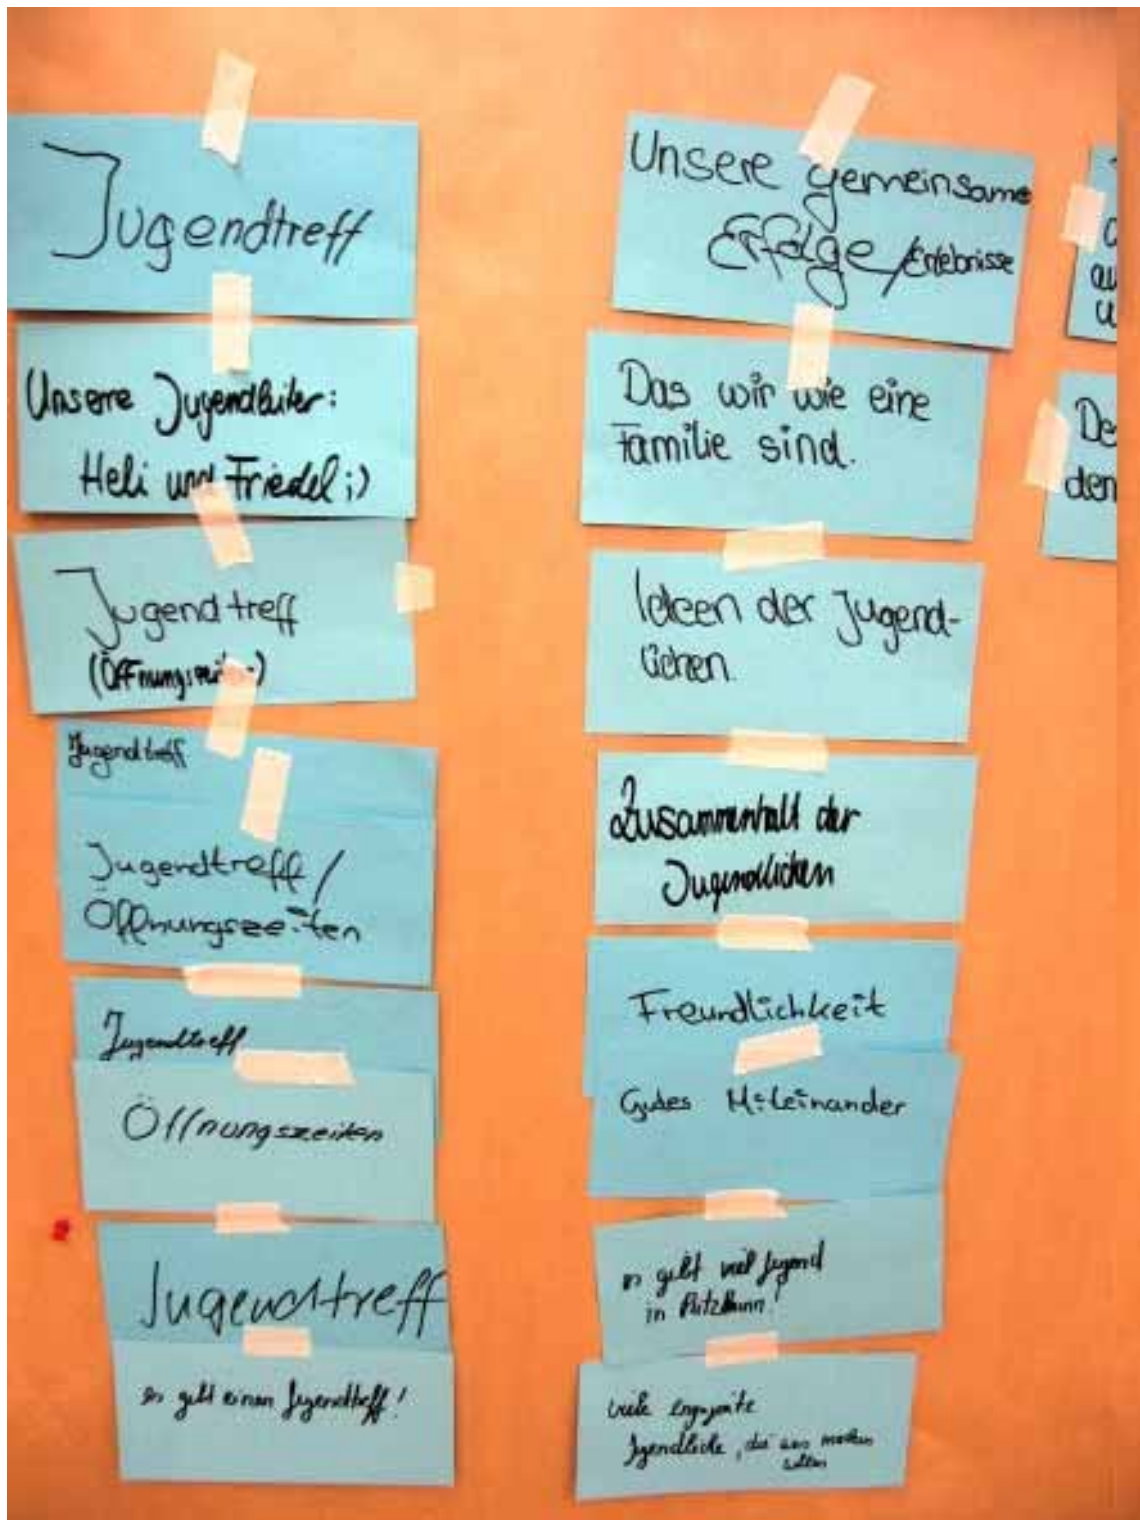 Jugendtreff
Unsere Jugendleiter:
Heli und Friedel ;)
Jugendtreff
(Öffnungszeiten)
Jugendtreff
Jugendtreff /
Öffnungszeiten
Jugendtreff
Öffnungszeiten
Jugendtreff
es gibt einen Jugendtreff!
Unsere gemeinsame
Erfolge/Erlebnisse
Das wir wie eine
Familie sind.
Ideen der Jugend-
lichen.
Zusammenhalt der
Jugendlichen
Freundlichkeit
Gutes Miteinander
es gibt viel Jugend
in Putzbrunn!
viele engagierte
Jgendliche, die was machen
wollen
De
den